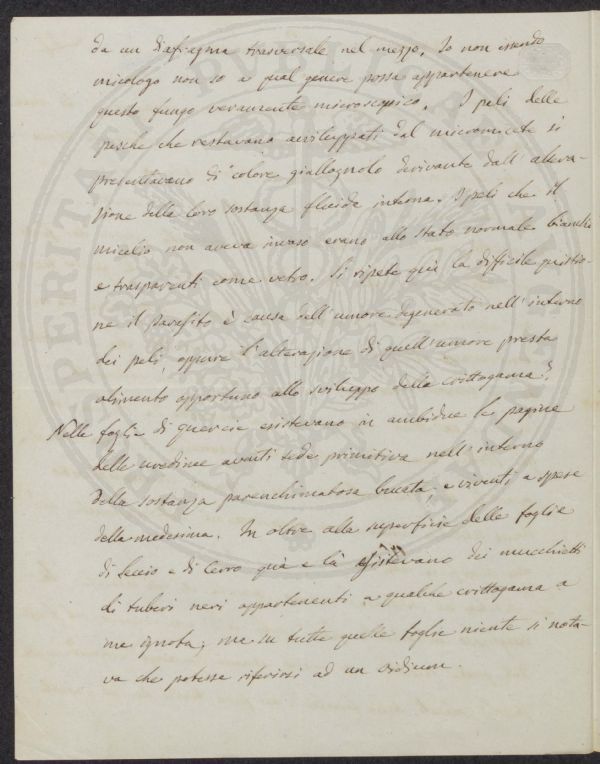 da un diafragma trasversale nel mezzo. Io non essendo
micologo non so a qual genere possa appartenere
questo fungo veramente microscopico. I peli delle
pesche che restavano avviluppati dal micromicete si
presentavano di colore giallognolo derivante dall'altera-
zione della loro sostanza fluida interna. I peli che il
micelio non aveva invaso erano allo stato normale bianchi
e trasparenti come vetro. Si ripete quà la difficile quistio-
ne il parasito è causa dell'umore degenerato nell'interno
dei peli, oppure l'alterazione di quell'umore presta
alimento opportuno allo sviluppo della crittogama?
Nelle foglie di quercie esistevano in ambidue le pagine
delle uredinee aventi sede primitiva nell'interno
della sostanza parenchimatosa bucata, e viventi a spese
della medesima. In oltre alla superficie delle foglie
di Leccio e di Cerro quà e là esistevano dei mucchietti
di tuberi neri appartenenti a qualche crittogama a
me ignota; ma su tutte quelle foglie niente si nota-
va che potesse riferirsi ad un oidium.
PUBLICA
PROSPERITAS